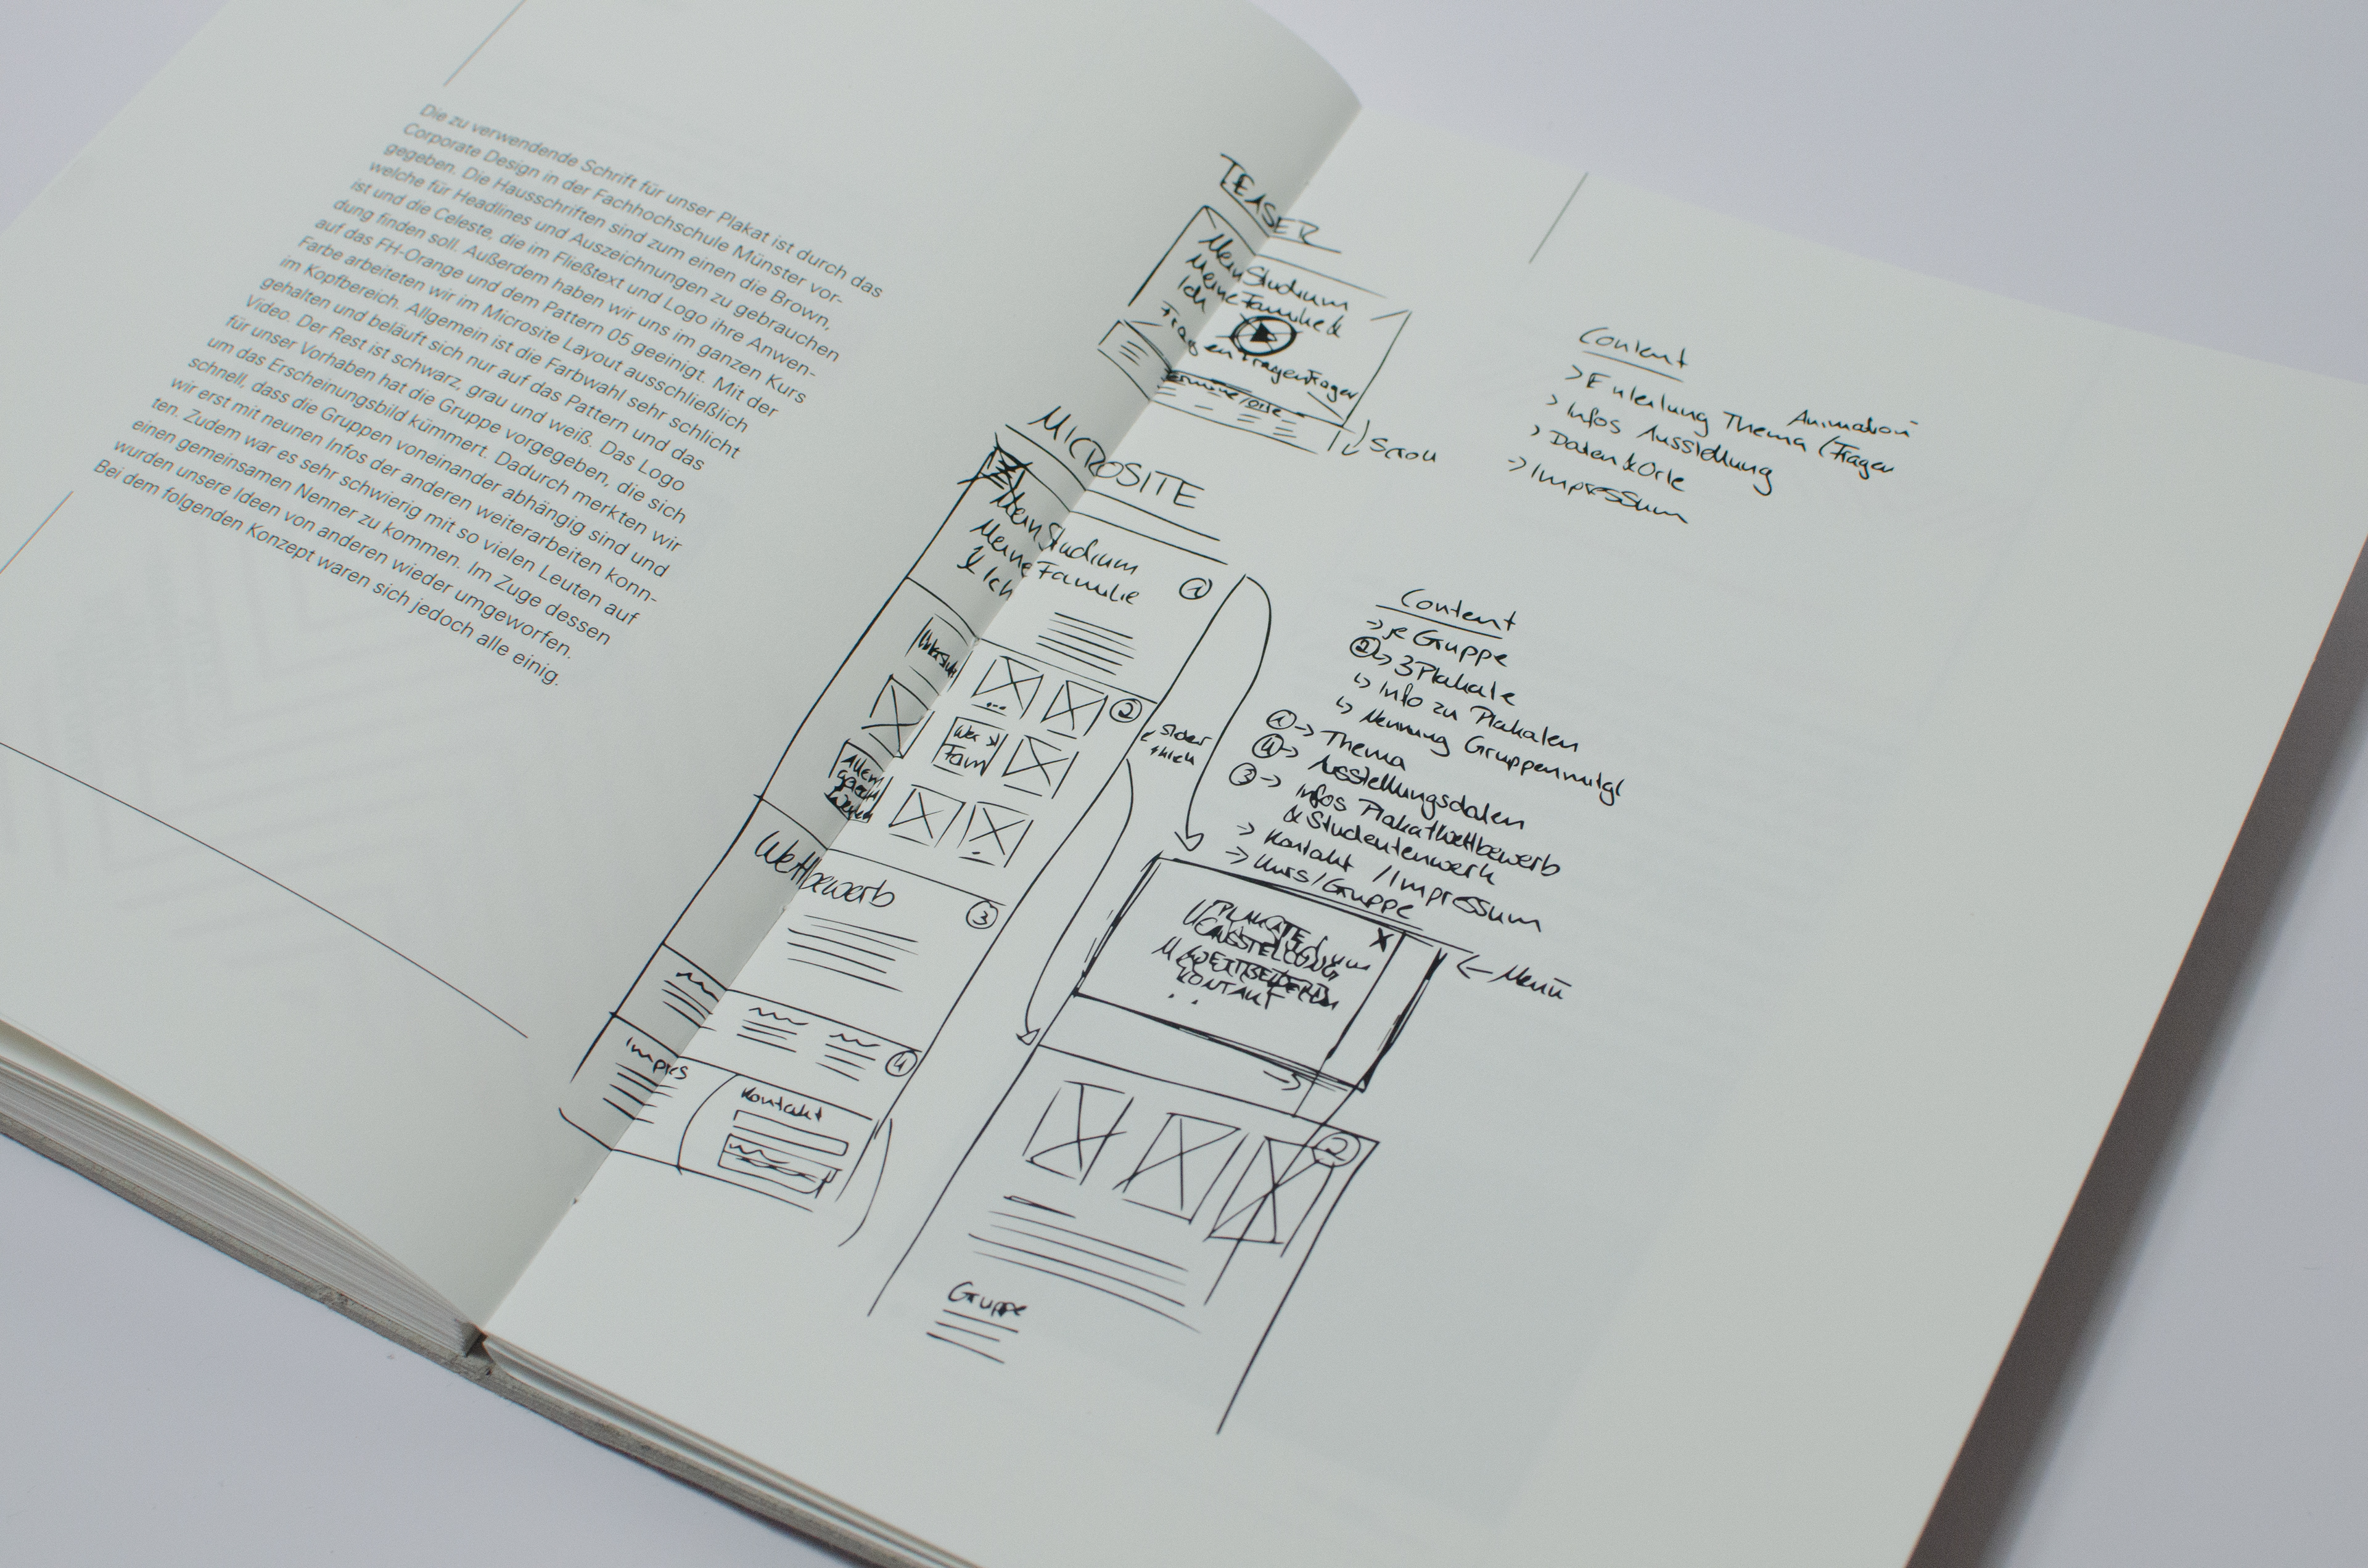 Die zu verwendende Schrift für unser Plakat ist durch das
Corporate Design in der Fachhochschule Münster vor-
gegeben. Die Hausschriften sind zum einen die Brown,
welche für Headlines und Auszeichnungen zu gebrauchen
ist und die Celeste, die im Fließtext und Logo ihre Anwen-
dung finden soll. Außerdem haben wir uns im ganzen Kurs
auf das FH-Orange und dem Pattern 05 geeinigt. Mit der
Farbe arbeiteten wir im Microsite Layout ausschließlich
im Kopfbereich. Allgemein ist die Farbwahl sehr schlicht
gehalten und beläuft sich nur auf das Pattern und das
Video. Der Rest ist schwarz, grau und weiß. Das Logo
für unser Vorhaben hat die Gruppe vorgegeben, die sich
um das Erscheinungsbild kümmert. Dadurch merkten wir
schnell, dass die Gruppen voneinander abhängig sind und
wir erst mit neuen Infos der anderen weiterarbeiten konn-
ten. Zudem war es sehr schwierig mit so vielen Leuten auf
einen gemeinsamen Nenner zu kommen. Im Zuge dessen
wurden unsere Ideen von anderen wieder umgeworfen.
Bei dem folgenden Konzept waren sich jedoch alle einig.
TEASER
Mein Studium
Meine Familie &
Ich
Fragen Fragen Fragen
Termine/Orte
Scroll
Content
> Einleitung Thema (Fragen
Animation
> Infos Ausstellung
> Daten & Orte
> Impressum
MICROSITE
Mein Studium
Meine Familie
& Ich
1
2
Wer
Fam
Allein
Wettbewerb
3
4
Impres
Kontakt
Content
-> je Gruppe
2 -> 3 Plakate
Info zu Plakaten
Nennung Gruppenmitgl
1 -> Thema
4 -> Ausstellungsdaten
3 -> Infos Plakatwettbewerb
& Studentenwerk
-> Kontakt / Impressum
-> Kurs/Gruppe
PLAKATE
AUSSTELLUNG
WETTBEWERB
KONTAKT
X
<- Menü
2
Gruppe